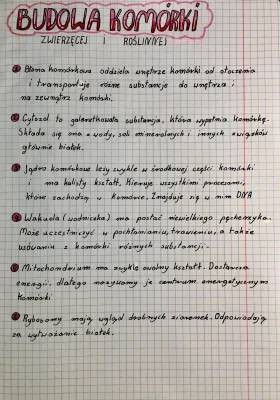 BUDOWA KOMÓRKI
ZWIERZĘCEJ I ROŚLINNEJ
1 Błona komórkowa oddziela wnętrze komórki od otoczenia
i transportuje różne substancje do wnętrza i
na zewnątrz komórki.
2 Cytozol to galaretkowata substancja, która wypełnia komórkę.
Składa się ona z wody, soli mineralnych i innych związków
głównie białek.
3 Jądro komórkowe leży zwykle w środkowej części komórki
i ma kulisty kształt. Kieruje wszystkimi procesami,
które zachodzą w komórce. Znajduje się w nim DNA
4 Wakuola (wodniczka) ma postać niewielkiego pęcherzyka.
Może uczestniczyć w pochłanianiu, trawieniu, a także
usuwaniu z komórki różnych substancji.
5 Mitochondrium ma zwykle owalny kształt. Dostarcza
energii, dlatego nazywamy je centrum energetycznym
komórki
6 Rybosomy mają wygląd drobnych ziarenek. Odpowiadają
za wytwarzanie białek.